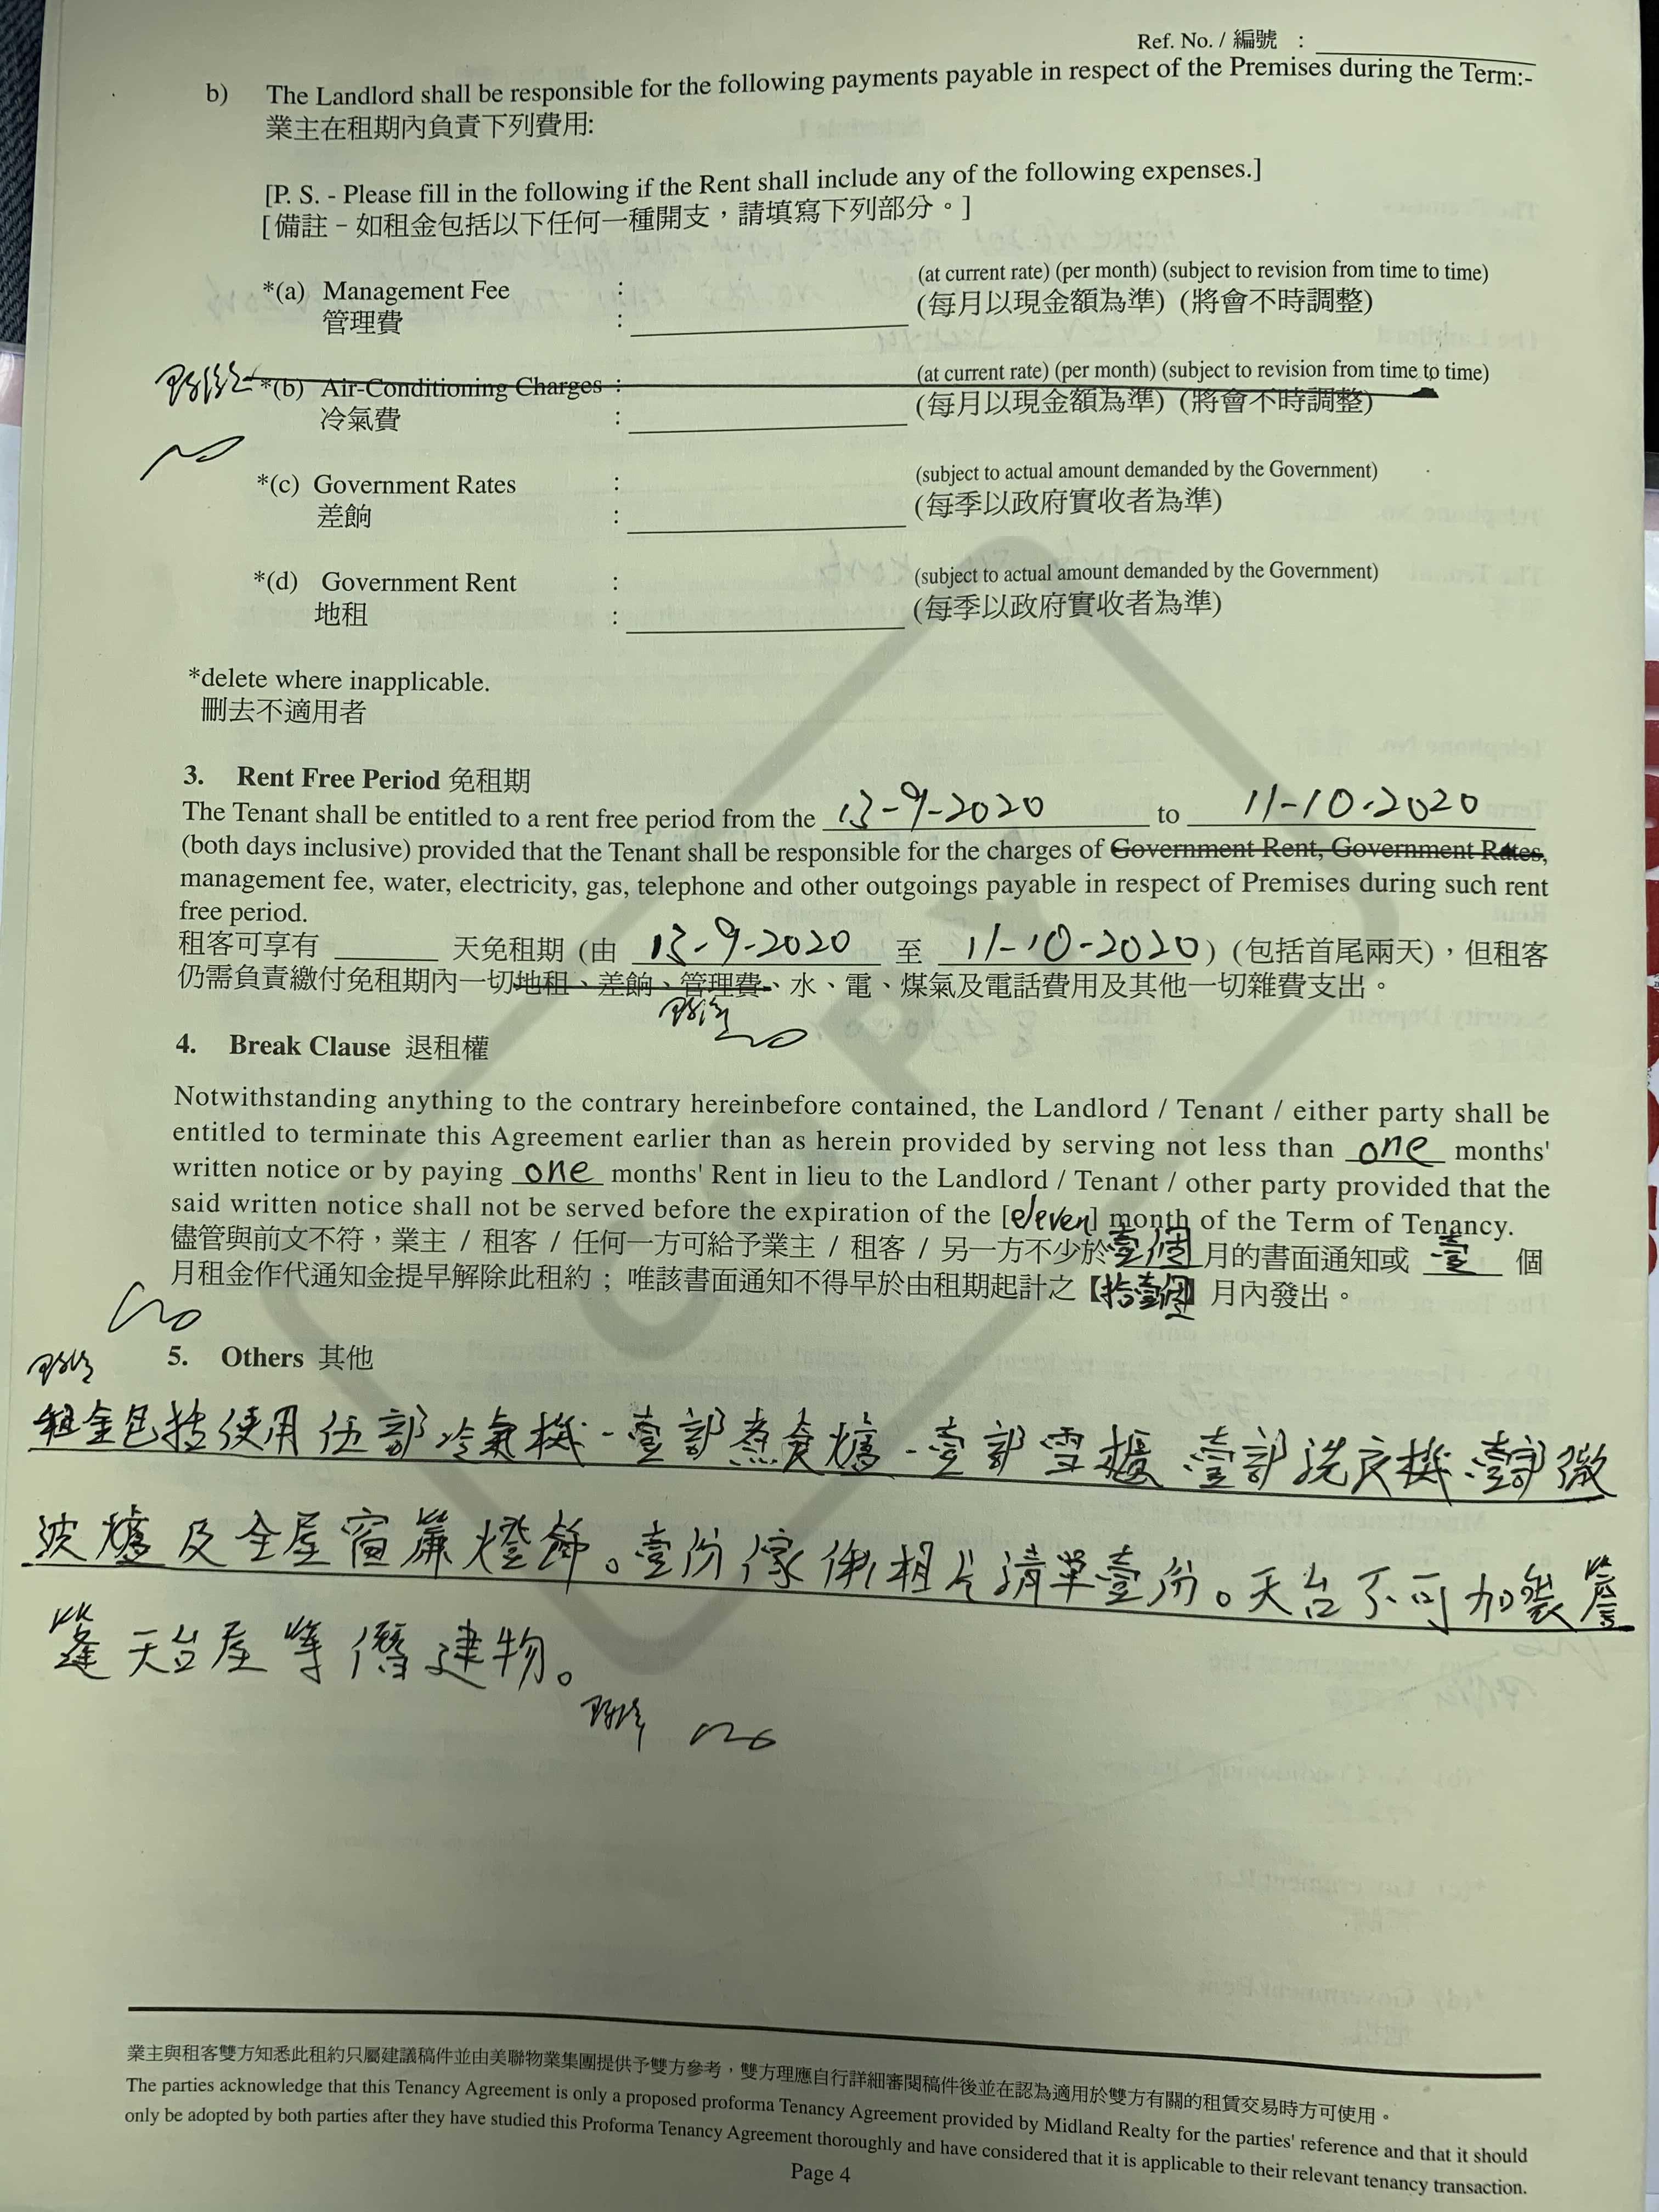 Ref. No. / 編號 :
b) The Landlord shall be responsible for the following payments payable in respect of the Premises during the Term:-
業主在租期內負責下列費用:
[P. S. - Please fill in the following if the Rent shall include any of the following expenses.]
[備註 – 如租金包括以下任何一種開支，請填寫下列部分。]
*(a) Management Fee : (at current rate) (per month) (subject to revision from time to time)
管理費 : (每月以現金額為準) (將會不時調整)
*(b) Air-Conditioning Charges : (at current rate) (per month) (subject to revision from time to time)
冷氣費 : (每月以現金額為準) (將會不時調整)
*(c) Government Rates : (subject to actual amount demanded by the Government)
差餉 : (每季以政府實收者為準)
*(d) Government Rent : (subject to actual amount demanded by the Government)
地租 : (每季以政府實收者為準)
*delete where inapplicable.
刪去不適用者
3. Rent Free Period 免租期
The Tenant shall be entitled to a rent free period from the 13-9-2020 to 11-10-2020
(both days inclusive) provided that the Tenant shall be responsible for the charges of Government Rent, Government Rates,
management fee, water, electricity, gas, telephone and other outgoings payable in respect of Premises during such rent
free period.
租客可享有 天免租期 (由 13-9-2020 至 11-10-2020) (包括首尾兩天)，但租客
仍需負責繳付免租期內一切地租、差餉、管理費、水、電、煤氣及電話費用及其他一切雜費支出。
4. Break Clause 退租權
Notwithstanding anything to the contrary hereinbefore contained, the Landlord / Tenant / either party shall be
entitled to terminate this Agreement earlier than as herein provided by serving not less than one months'
written notice or by paying one months' Rent in lieu to the Landlord / Tenant / other party provided that the
said written notice shall not be served before the expiration of the [eleven] month of the Term of Tenancy.
儘管與前文不符，業主 / 租客 / 任何一方可給予業主 / 租客 / 另一方不少於壹個月的書面通知或 壹 個
月租金作代通知金提早解除此租約；唯該書面通知不得早於由租期起計之【拾壹個】月內發出。
5. Others 其他
租金包括使用伍部冷氣機-壹部煮食爐-壹部雪櫃 壹部洗衣機 壹部微
波爐及全屋窗簾燈飾。壹份傢俬相片清單壹份。天台不可加裝簷
篷天台屋等僭建物。
COPY
業主與租客雙方知悉此租約只屬建議稿件並由美聯物業集團提供予雙方參考，雙方理應自行詳細審閱稿件後並在認為適用於雙方有關的租賃交易時方可使用。
The parties acknowledge that this Tenancy Agreement is only a proposed proforma Tenancy Agreement provided by Midland Realty for the parties' reference and that it should
only be adopted by both parties after they have studied this Proforma Tenancy Agreement thoroughly and have considered that it is applicable to their relevant tenancy transaction.
Page 4